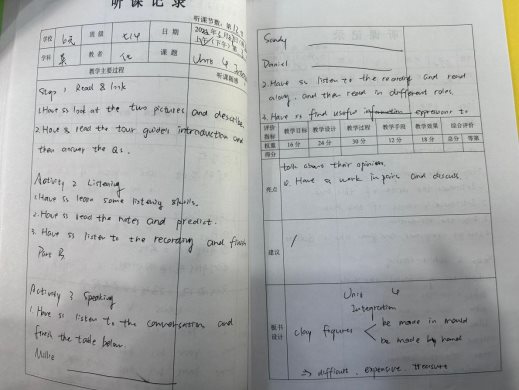 听课记录
听课节数: 第12节
学校
班级
日期
学科
英
教者
课题
Unit 4
教学主要过程
听课随感
Step 1 Read & link
1. Have ss look at the two pictures and describe.
2. Have ss read the tour guide's introduction and
then answer the Qs.
Activity 2 Listening
1. Have ss learn some listening skills.
2. Have ss read the notes and predict.
3. Have ss listen to the recording and finish
Part B
Activity 3 Speaking
1. Have ss listen to the conversation and
finish the table below.
Millie
Sandy
Daniel
2. Have ss listen to the recording and read
along, and then read in different roles.
3. Have ss find useful expressions to
评价指标
教学目标 教学设计 教学过程 教学手段 教学效果 综合评价
权重 16分 24分 30分 12分 18分 总分 等第
得分
talk about their opinions.
Have ss work in pairs and discuss.
亮点
建议
/
板书设计
Unit 4
Integration
clay figures
be made in mould
be made by hand
→ difficult, expensive treasure